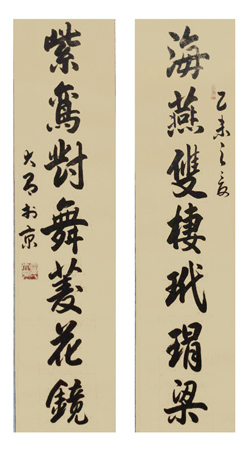 海燕雙棲玳瑁梁
乙未之夏
紫鸞對舞菱花鏡
於京